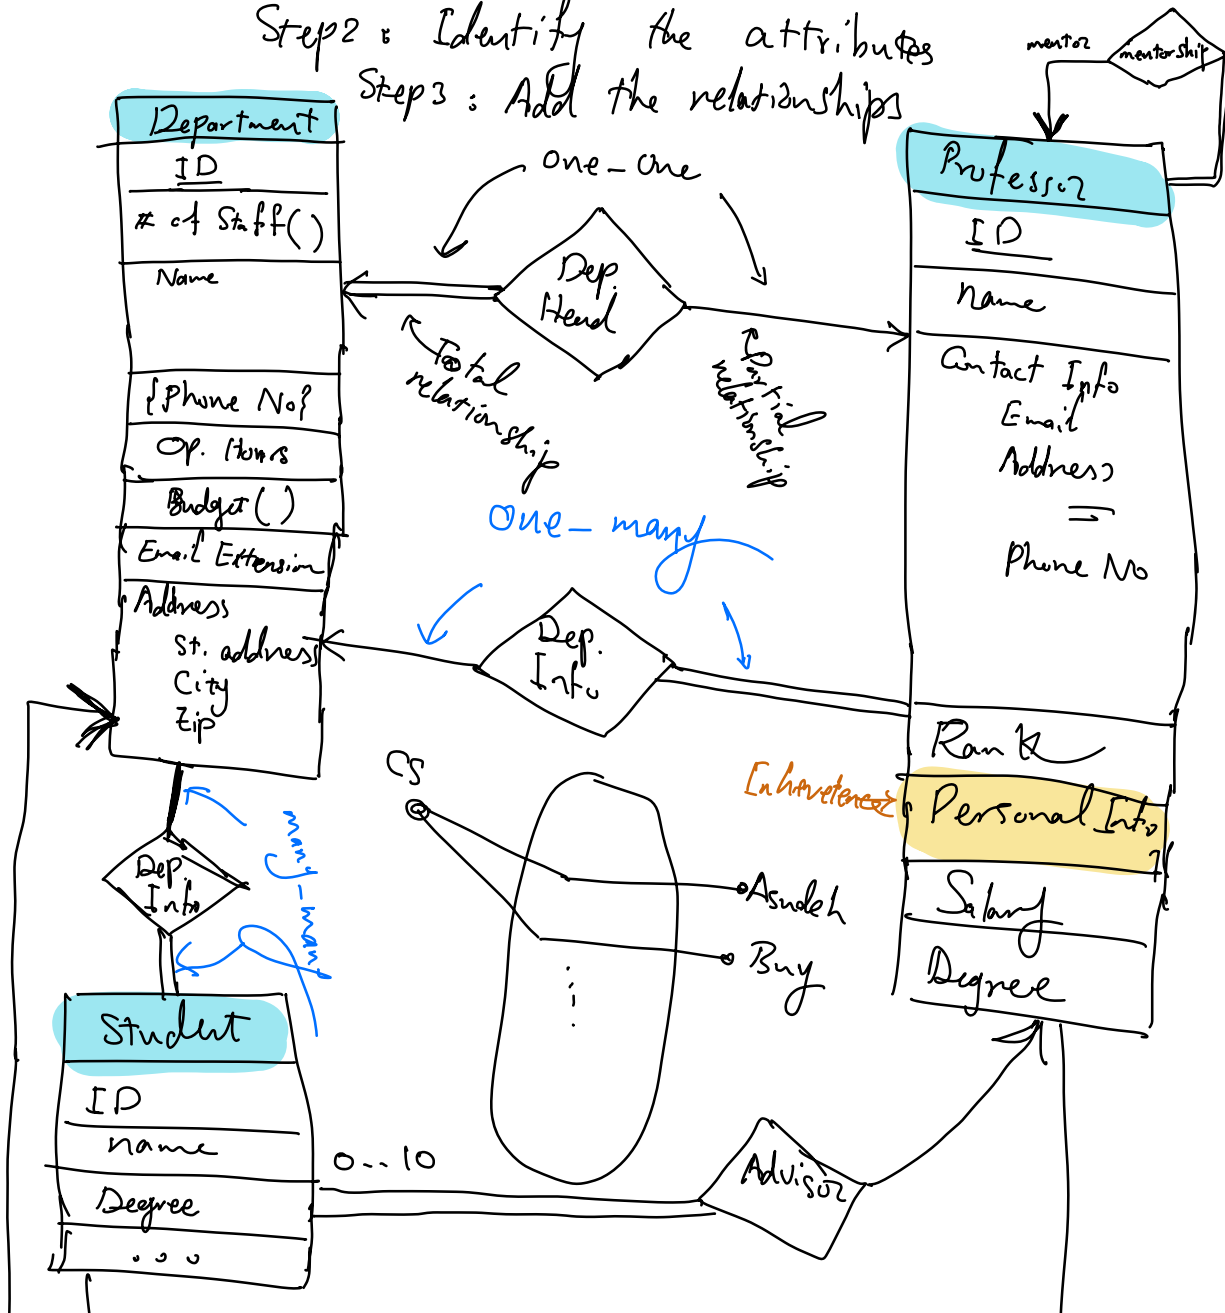 Step2: Identify the attributes
Step3: Add the relationships
mentor
mentorship
Department
ID
# of Staff()
Name
{Phone No}
Op. Hours
Budget()
Email Extension
Address
St. address
City
Zip
one_one
Dep.
Head
Total
relationship
Partial
relationship
Professor
ID
name
Contact Info
Email
Address
Phone No
Rank
Personal Info
Salary
Degree
one_many
Dep.
Info
CS
Asudeh
Buy
many_many
Dep.
Info
Student
ID
name
Degree
...
0...10
Advisor